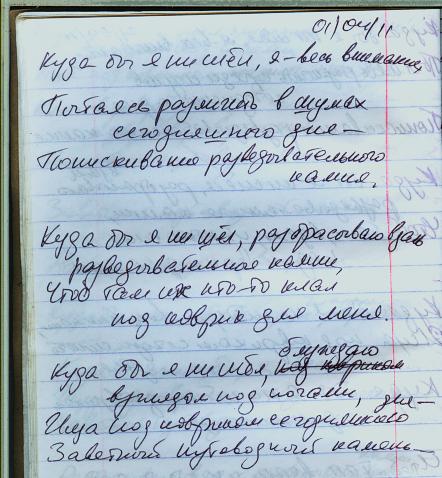 01/04/11
Куда бы я ни шёл, я – весь внимание,
Пытаясь различить в шумах
сегодняшнего дня –
Попискивание разведовательного
камня.
Куда бы я ни шёл, разбрасываю вдаль
разведовательные камни,
Чтоб там их кто-то клал
под коврик для меня.
блуждаю
Куда бы я ни шёл, под ковриком
взглядом под ногами,
Ища под ковриком сегодняшнего дня –
Заветный путеводный камень –